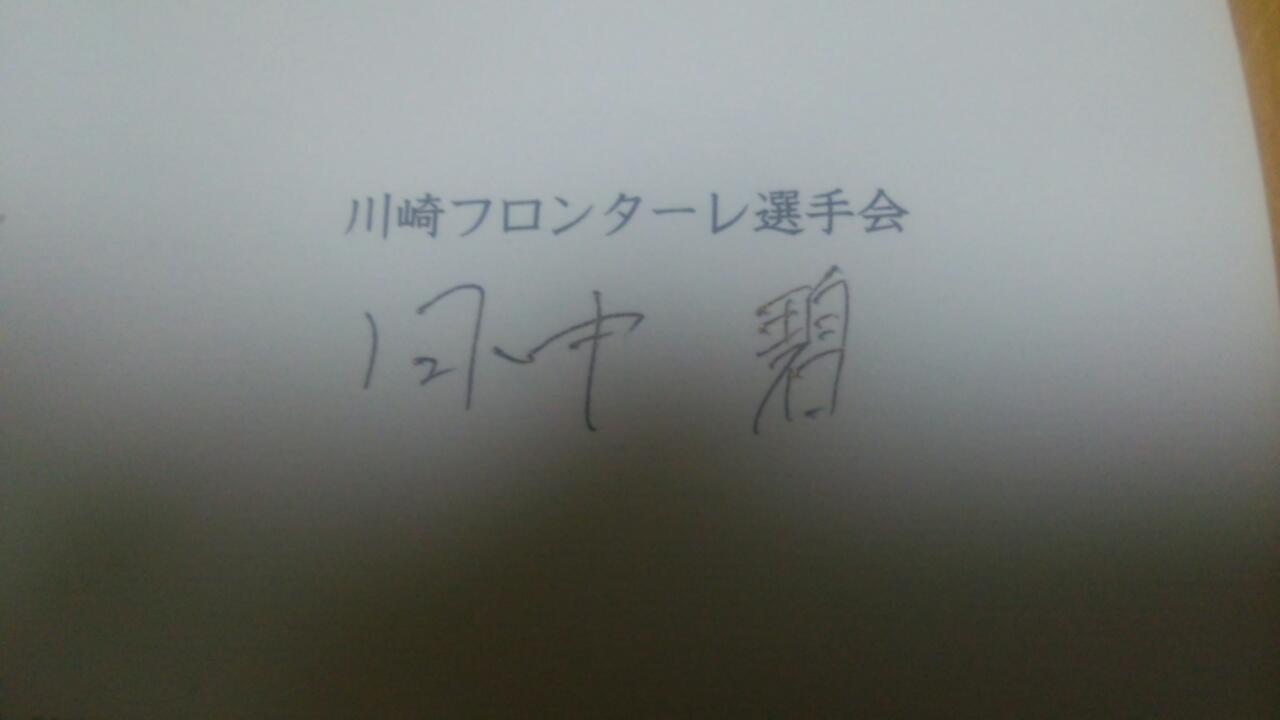 川崎フロンターレ選手会
田中 碧